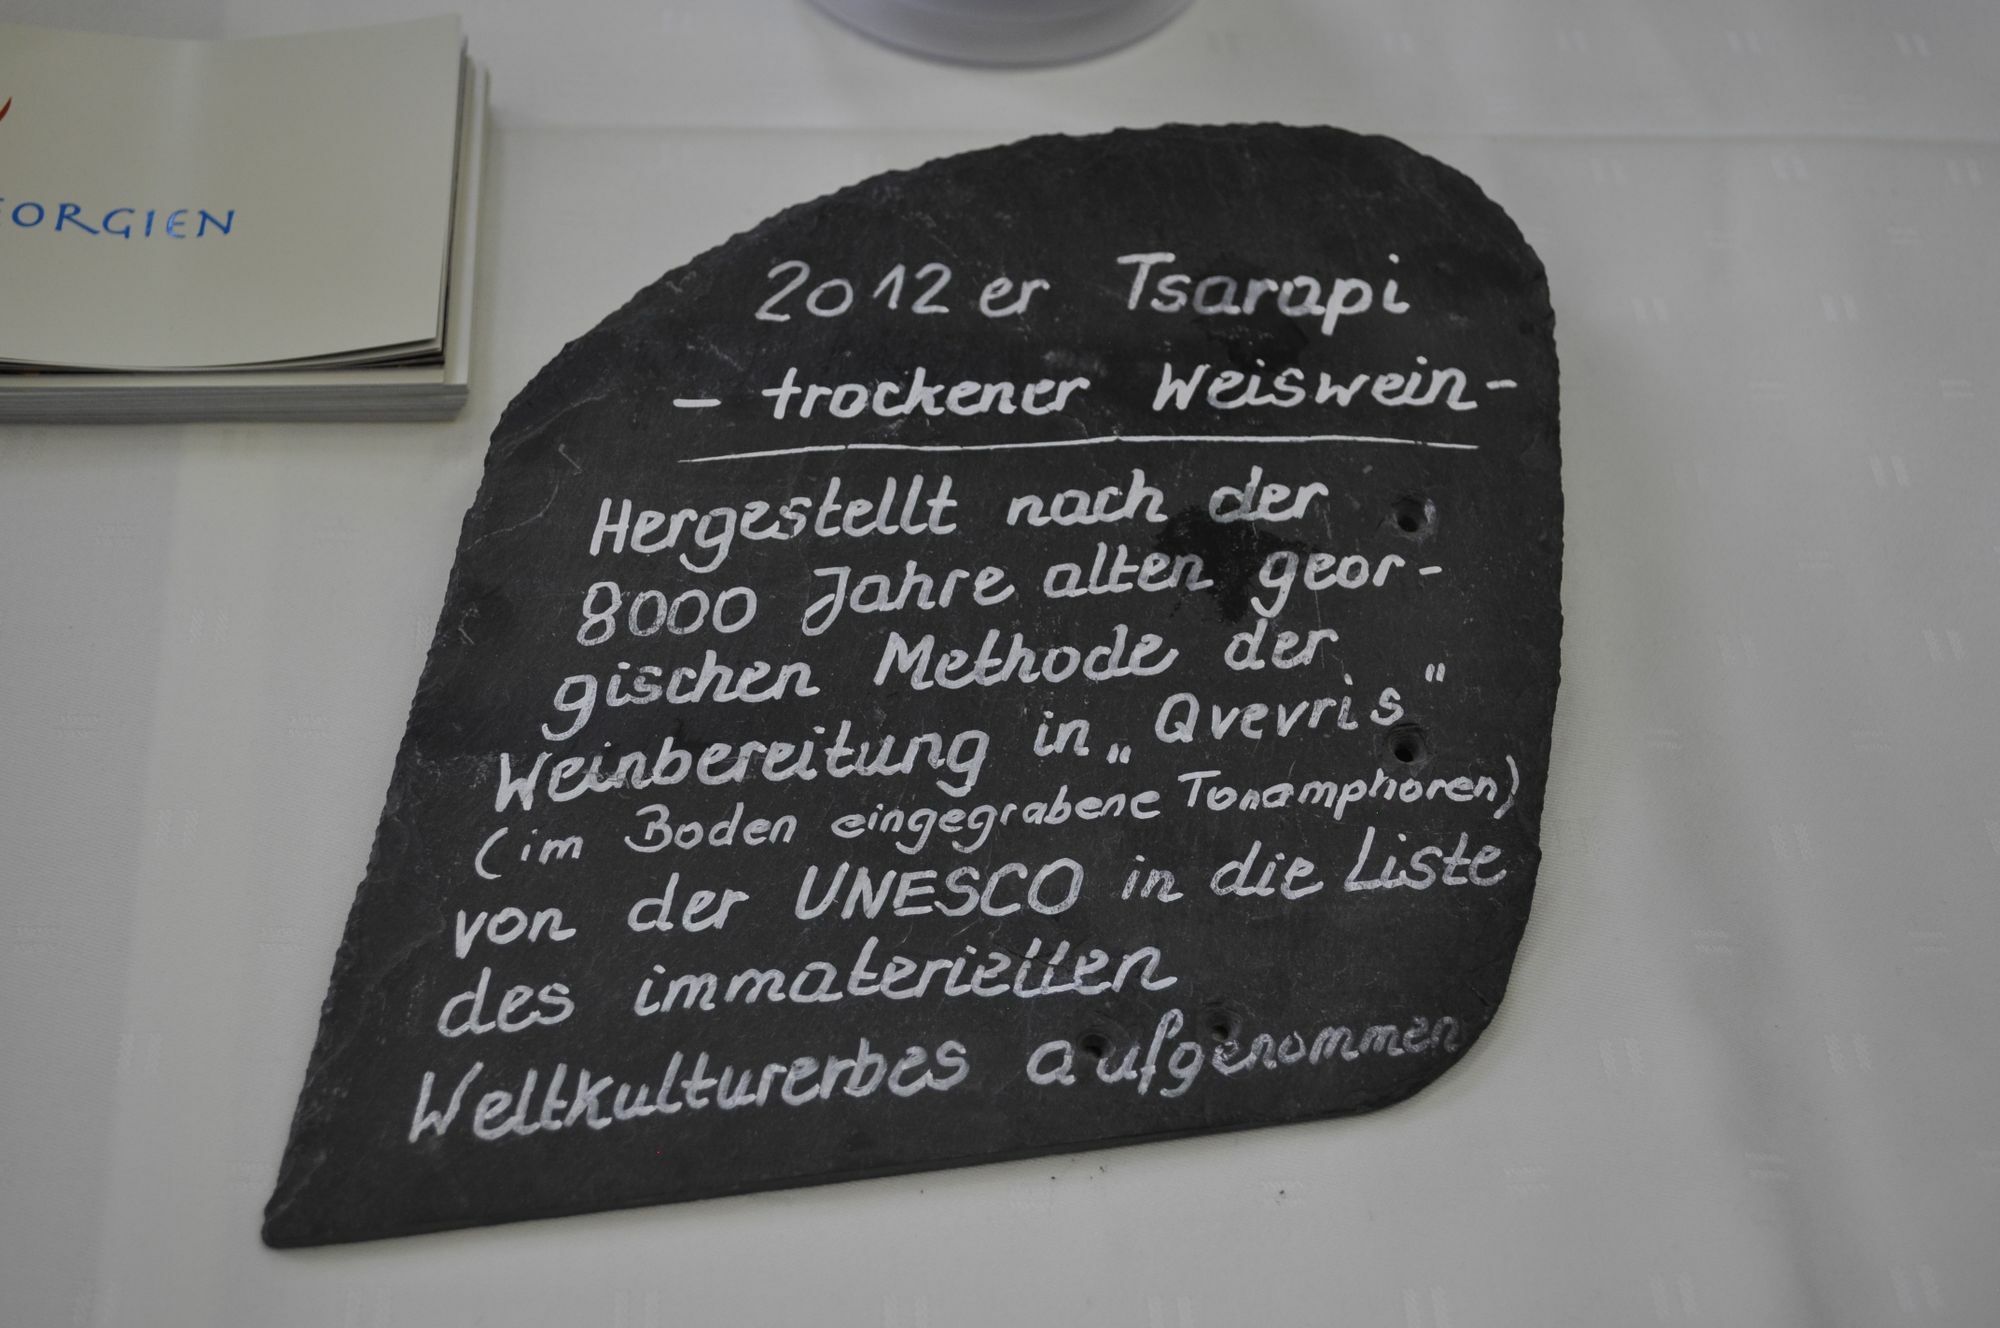 EORGIEN
2012er Tsarapi
- trockener Weiswein -
Hergestellt nach der
8000 Jahre alten geor-
gischen Methode der
Weinbereitung in „Qvevris“
(im Boden eingegrabene Tonamphoren)
von der UNESCO in die Liste
des immateriellen
Weltkulturerbes aufgenommen